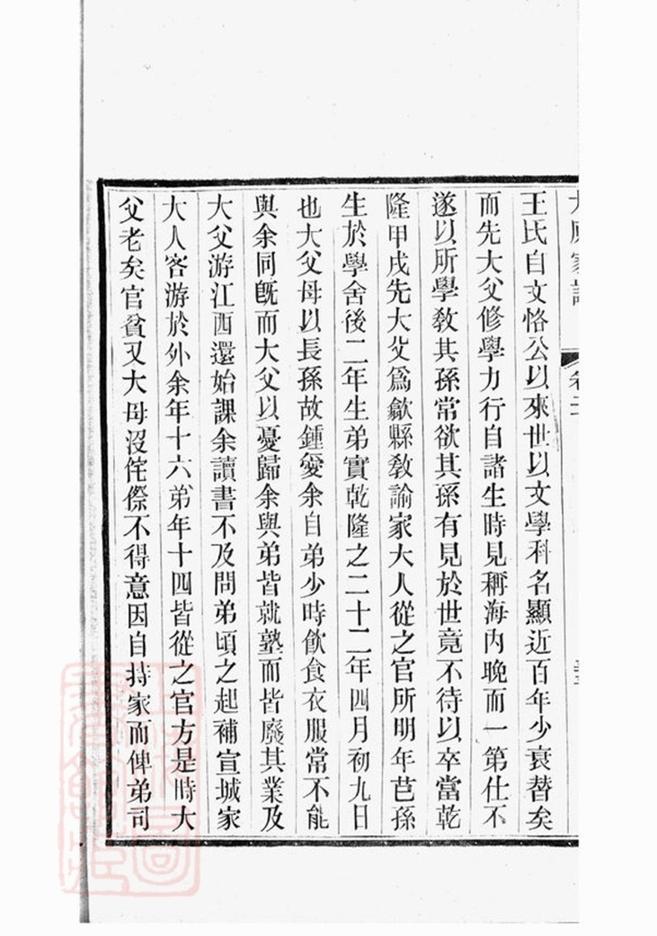 王氏自文恪公以來世以文學科名顯近百年少衰替矣
而先大父修學力行自諸生時見稱海內晚而一第仕不
遂以所學教其孫常欲其孫有見於世竟不待以卒當乾
隆甲戌先大父爲歙縣教諭家大人從之官所明年芑孫
生於學舍後二年生弟實乾隆之二十二年四月初九日
也大父母以長孫故鍾愛余自弟少時飲食衣服常不能
與余同旣而大父以憂歸余與弟皆就塾而皆廢其業及
大父游江西還始課余讀書不及問弟頃之起補宣城家
大人客游於外余年十六弟年十四皆從之官方是時大
父老矣官貧又大母沒侘傺不得意因自持家而俾弟司